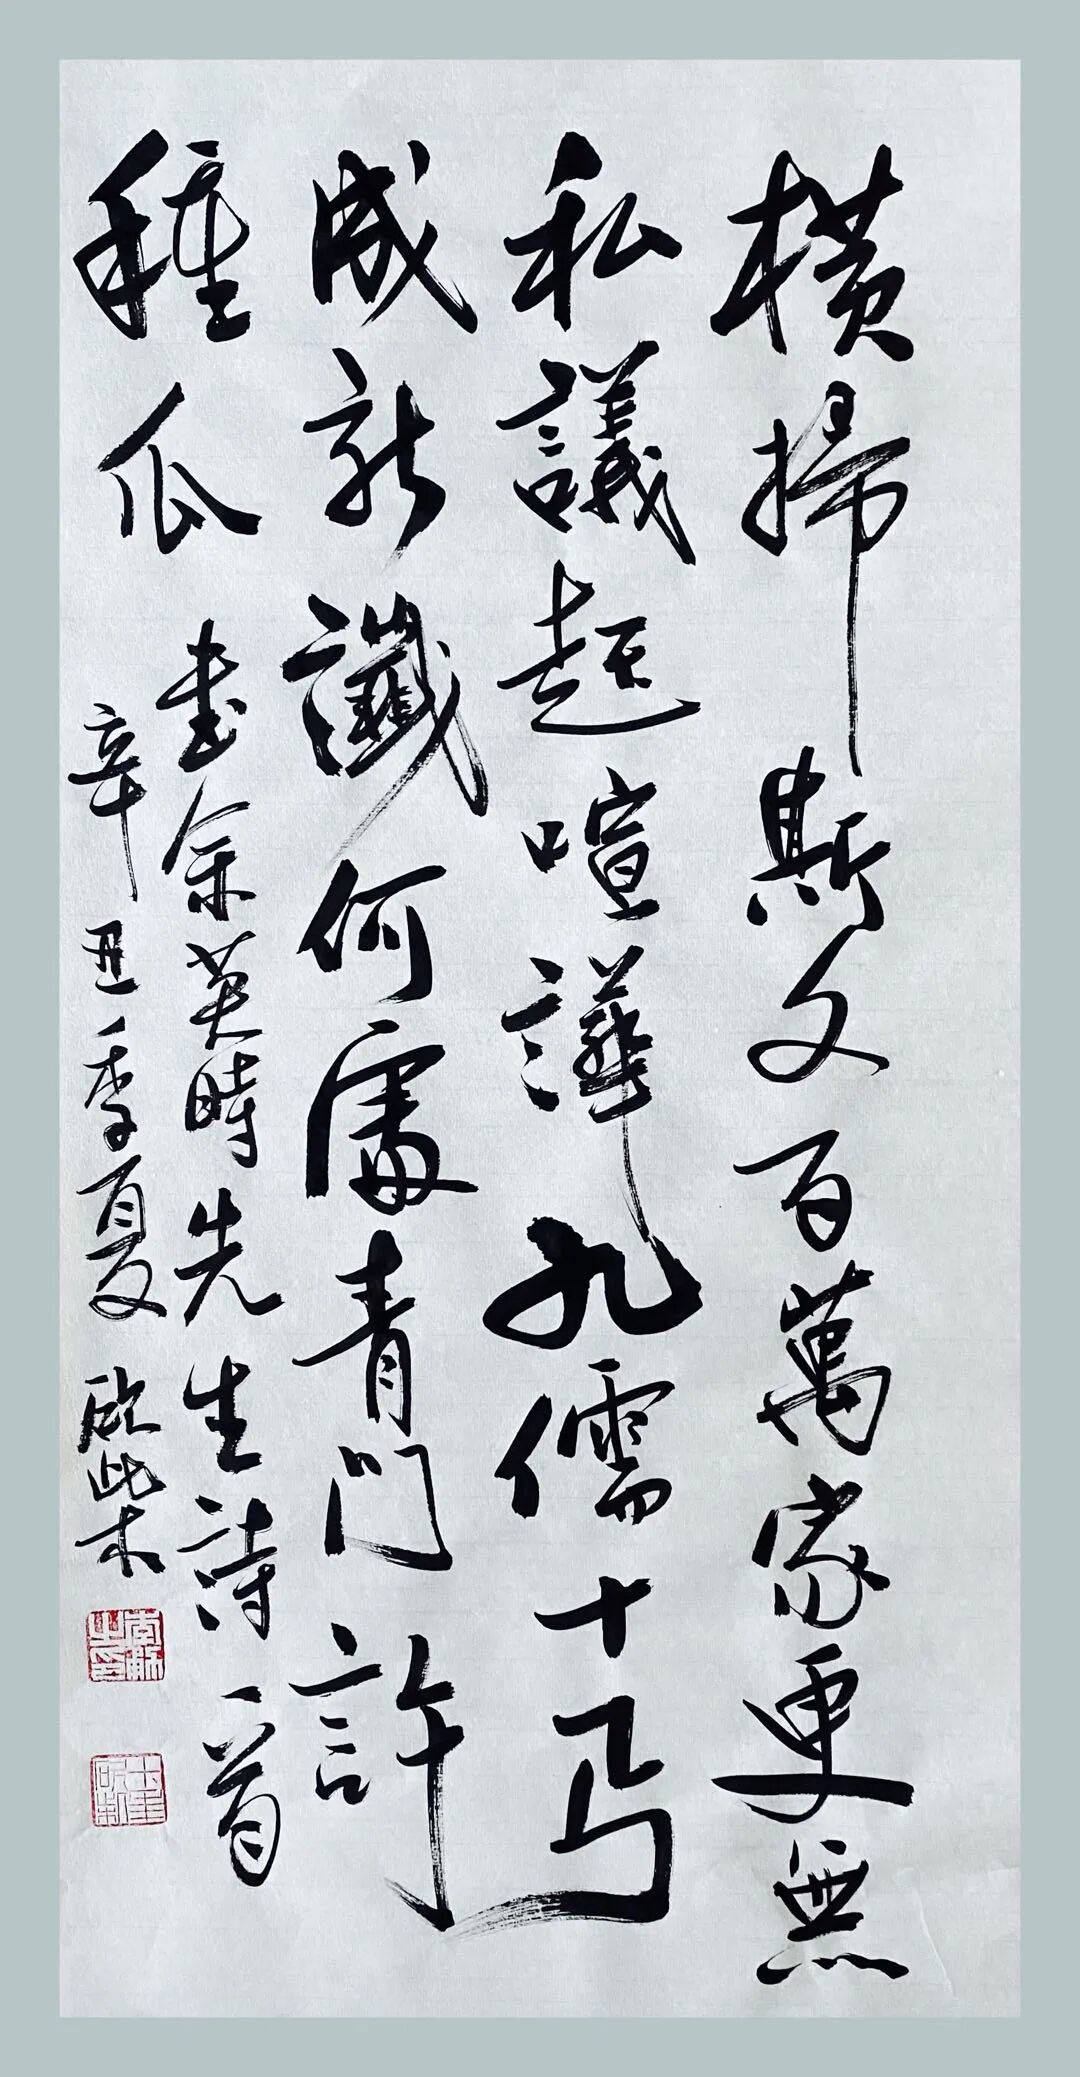 橫掃斯文百萬家更無
私議起喧譁九儒十丐
成新讖何處青門許
種瓜
書余英時先生詩一首
辛丑季夏 啟柴